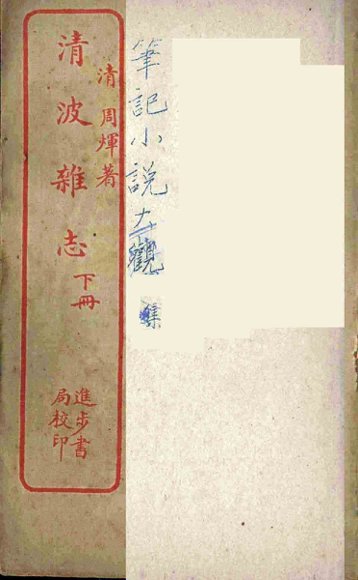 清波雜志下冊
清周煇著
進步書
局校印
筆記小說大觀
集